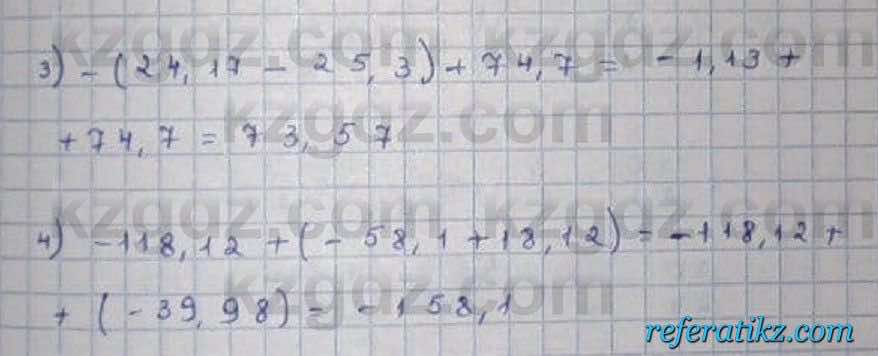 3) - (24,17 - 25,3) + 74,7 = -1,13 +
+ 74,7 = 73,57
4) -118,12 + (-58,1 + 18,12) = -118,12 +
+ (-39,98) = -158,1
kzgdz.com
kzgdz.com
kzgdz.com
kzgdz.com
referatikz.com